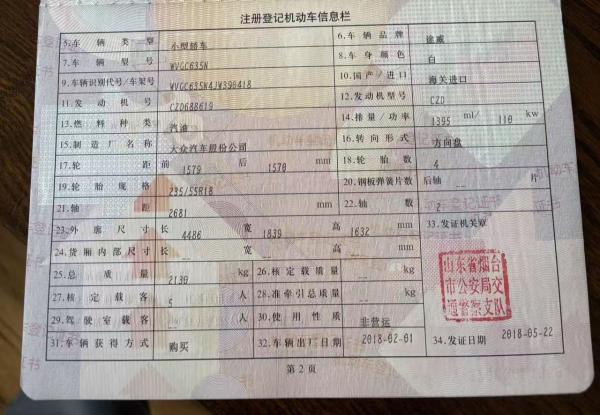 注册登记机动车信息栏
5.车辆类型 小型轿车 6.车辆品牌 途威
7.车辆型号 WVGC635N 8.车身颜色 白
9.车辆识别代号/车架号 WVGC635N4JW390418 10.国产/进口 海关进口
11.发动机号 CZD688619 12.发动机型号 CZD
13.燃料种类 汽油 14.排量/功率 1395 ml/ 110 kw
15.制造厂名称 大众汽车股份公司 16.转向形式 方向盘
17.轮距 前 1579 后 1570 mm 18.轮胎数 4
19.轮胎规格 235/55R18 20.钢板弹簧片数 后轴 -- 片
21.轴距 2681 mm 22.轴数 2
23.外廓尺寸 长 4486 宽 1839 高 1632 mm 33.发证机关章
24.货厢内部尺寸 长 -- 宽 -- 高 -- mm
25.总质量 2130 kg 26.核定载质量 -- kg
27.核定载客 5 人 28.准牵引总质量 -- kg
29.驾驶室载客 -- 人 30.使用性质 非营运
山东省烟台
市公安局交
通警察支队
31.车辆获得方式 购买 32.车辆出厂日期 2018-02-01 34.发证日期 2018-05-22
第2页